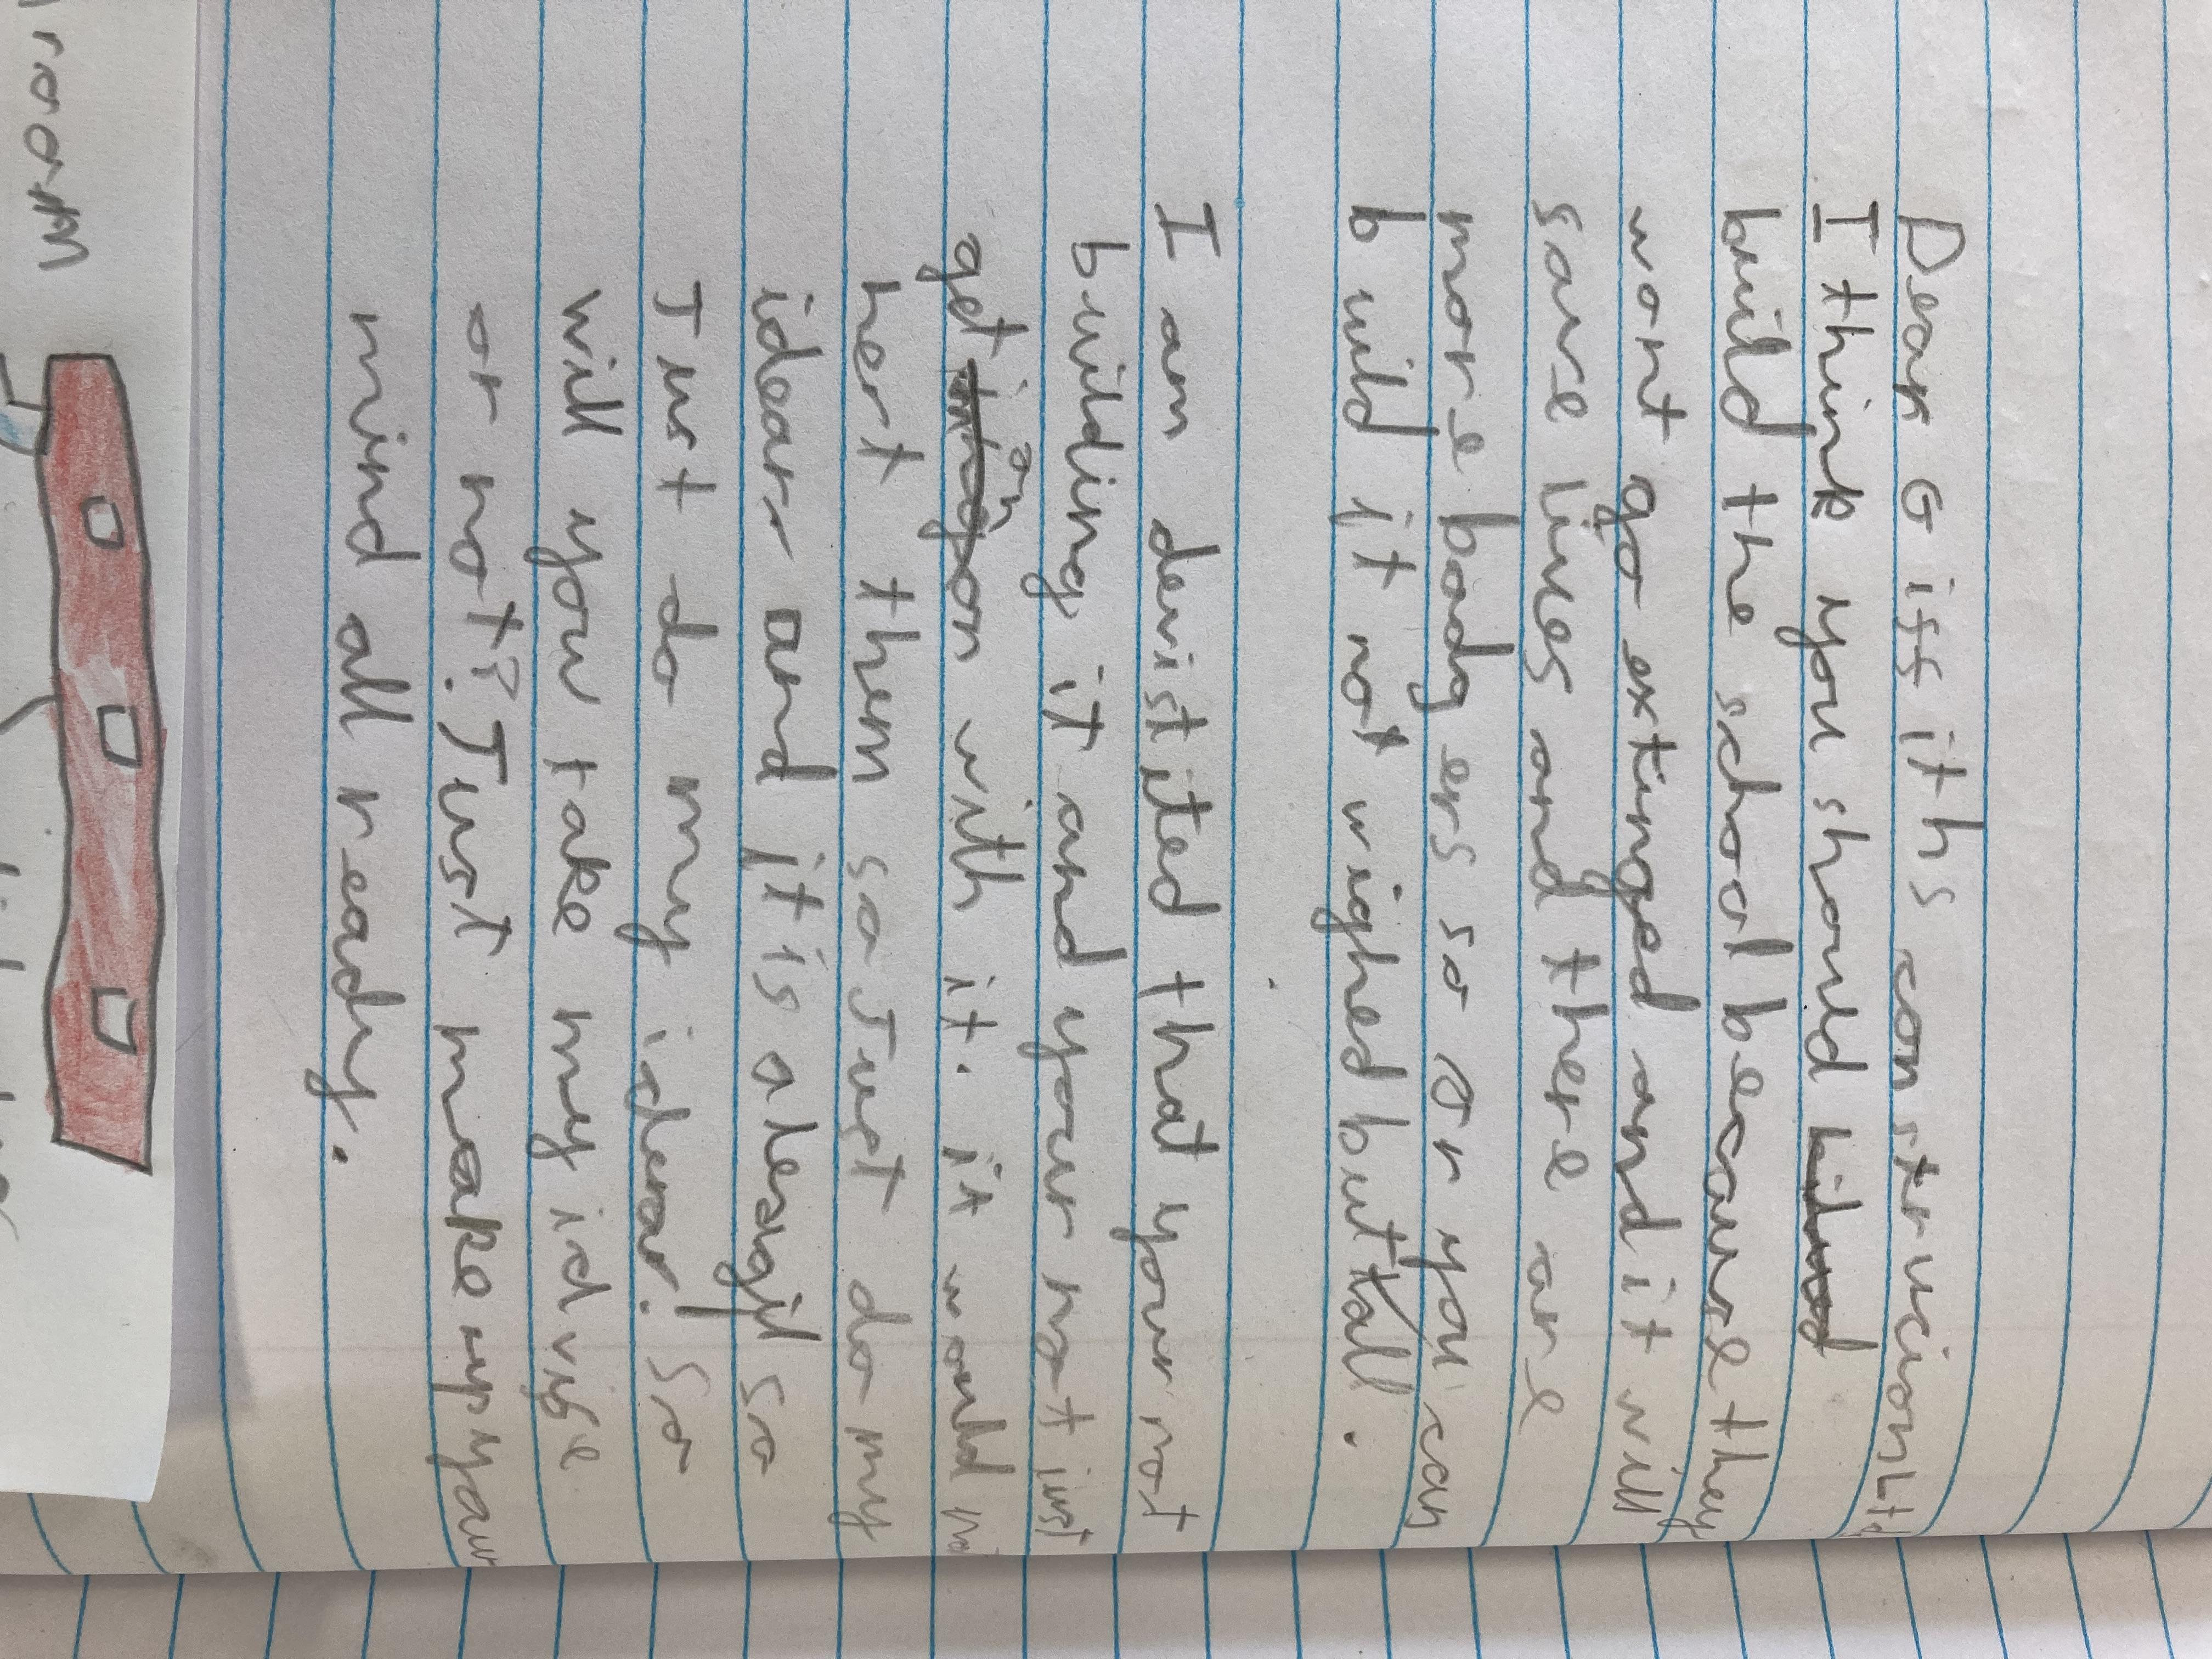 Dear Giffiths construcionltd
I think you should
build the school because they
wont go extinged and it will
save lives and there are
more body ers so or you can
build it not wighed but tall.
I am devistited that your not
building it and your not just
get on with it. it would not
hert them so Just do my
idear and it is alesgil so
Just do my idear! So
will you take my idvise
or not? Just make up your
mind all ready.